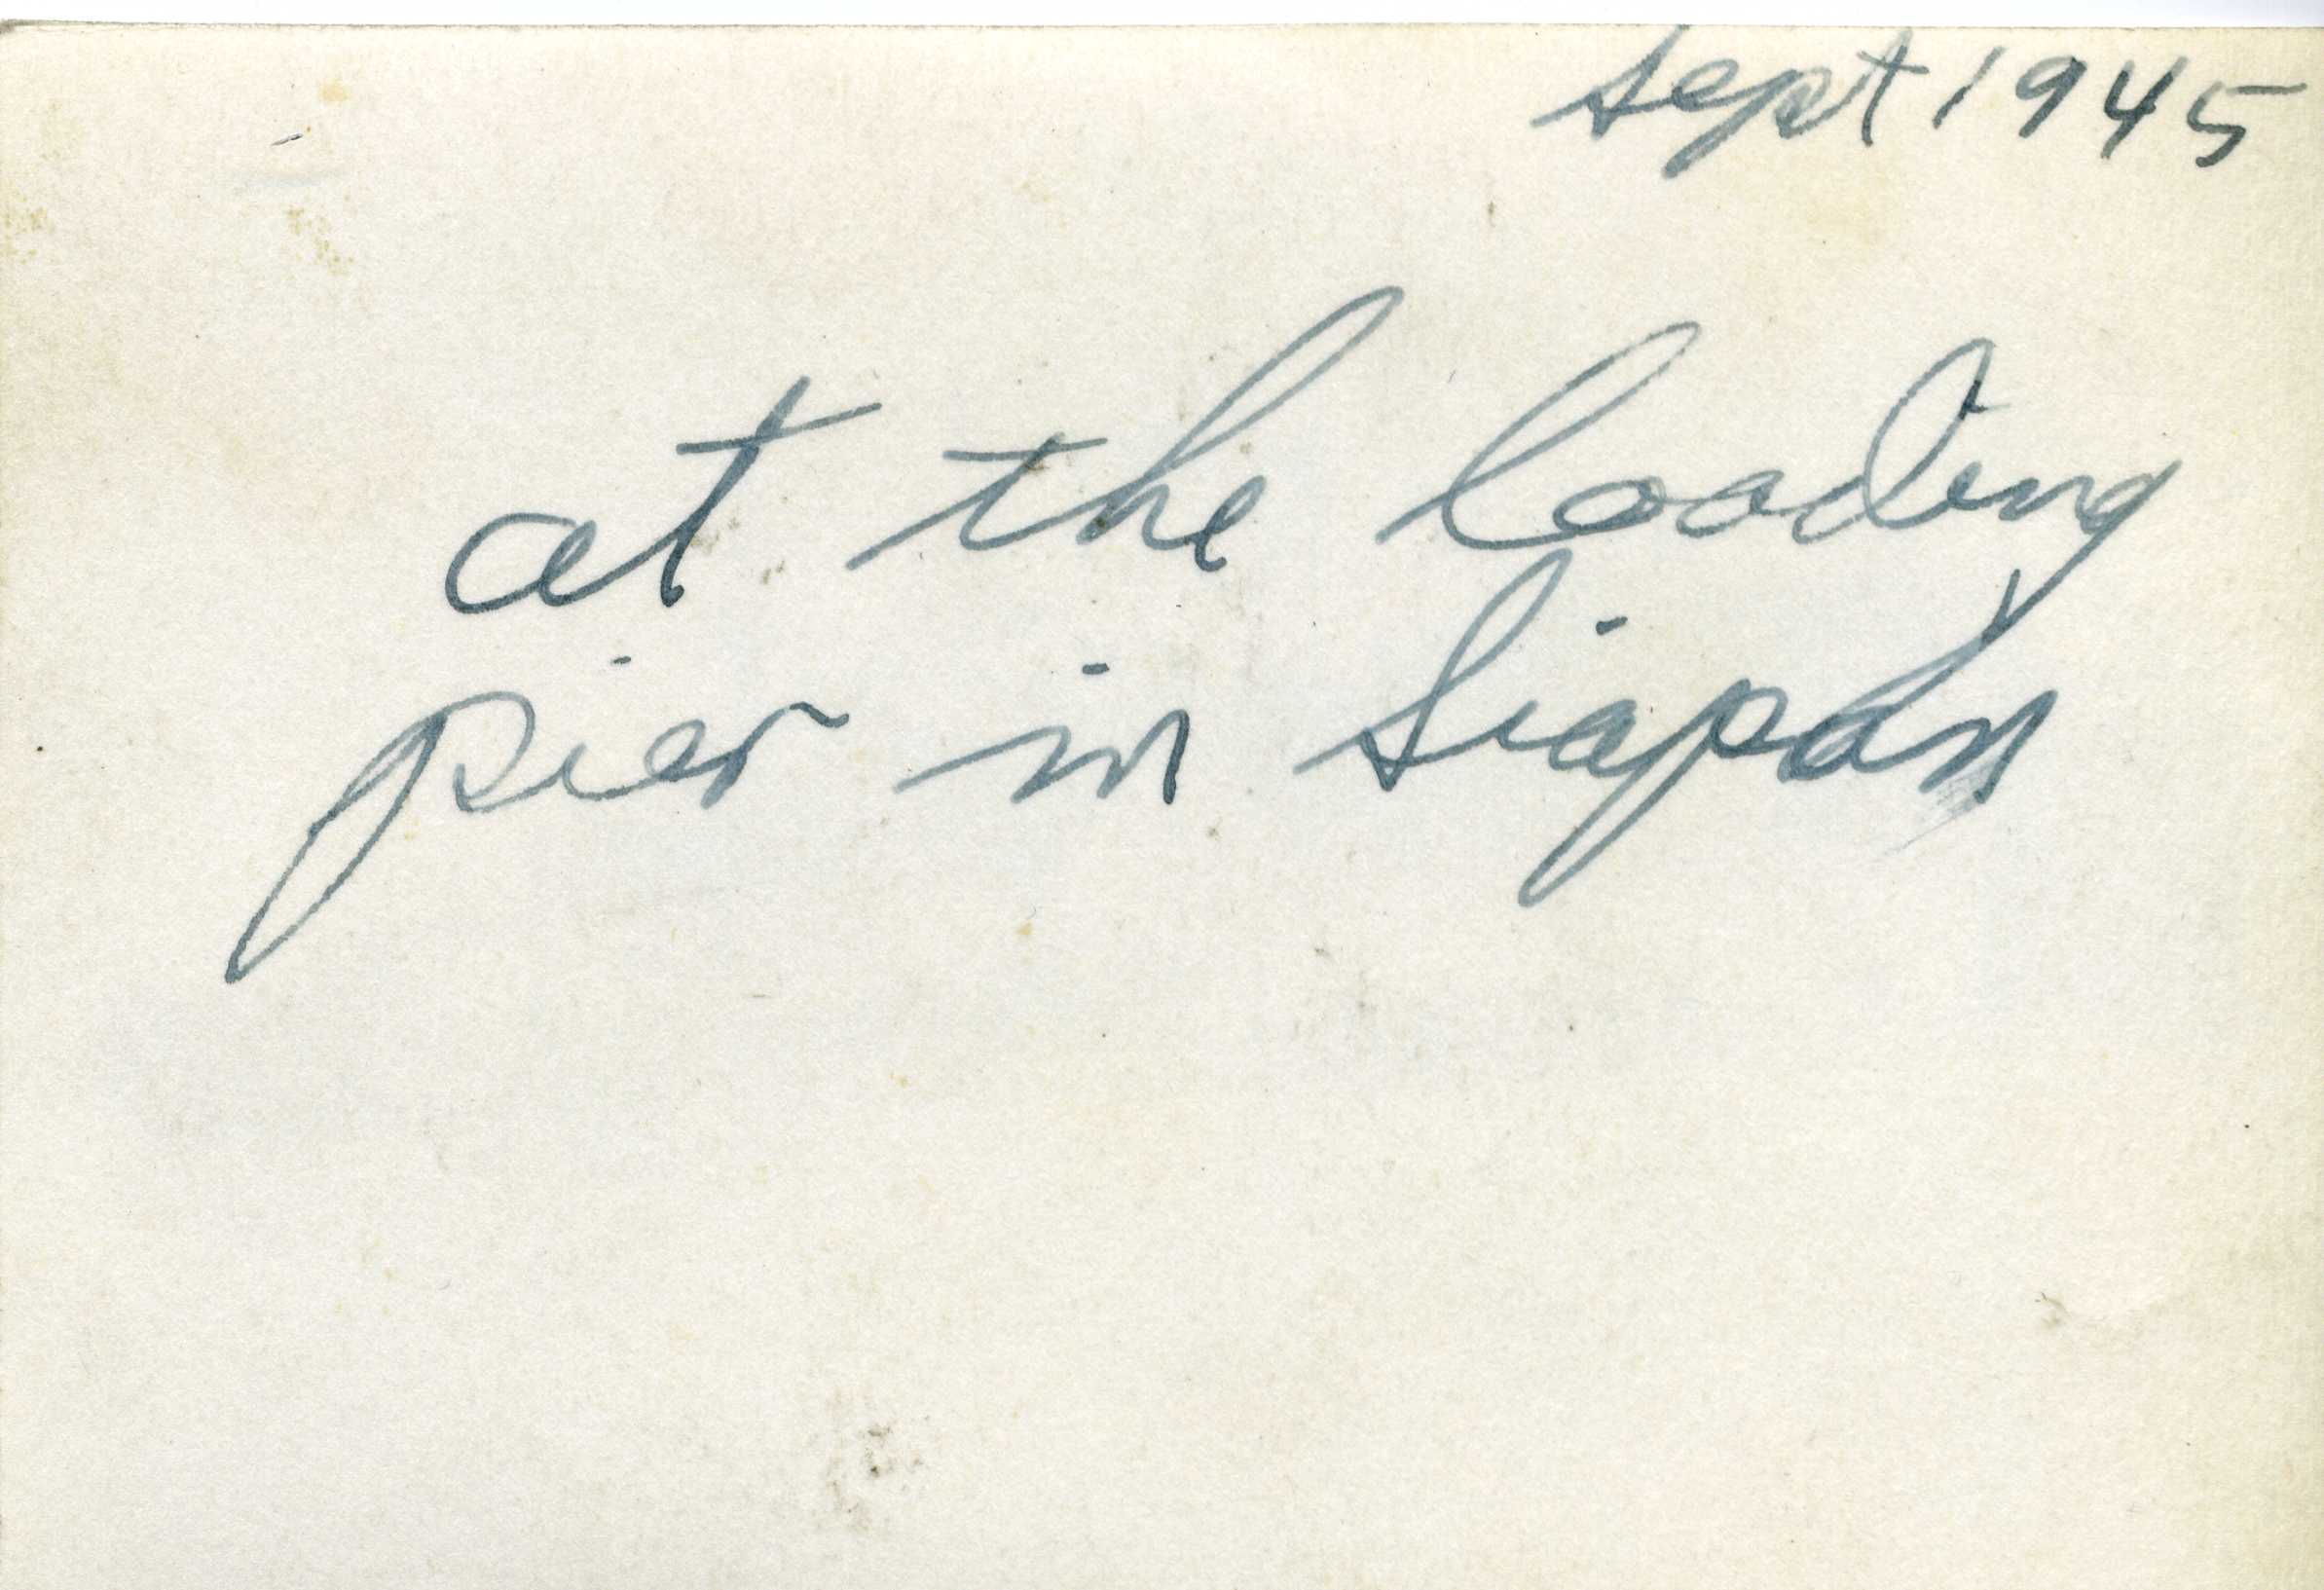 Sept 1945
at the loading
pier in Siapan